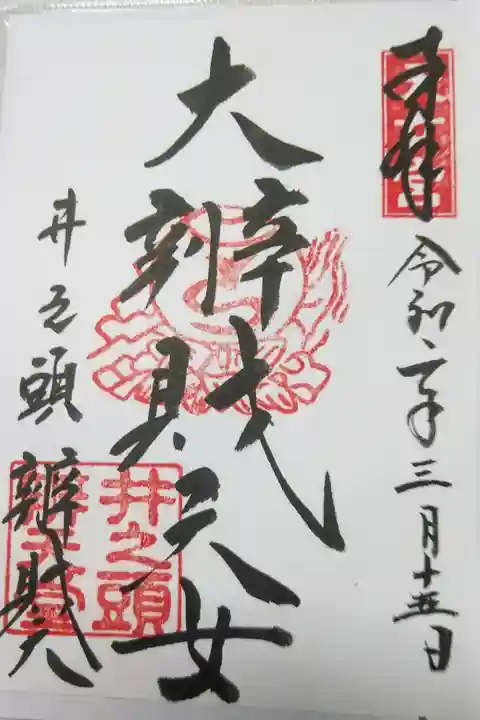 奉拝
令和二年三月十五日
大辨財天女
井之頭
辨財天
井之頭
辨天堂